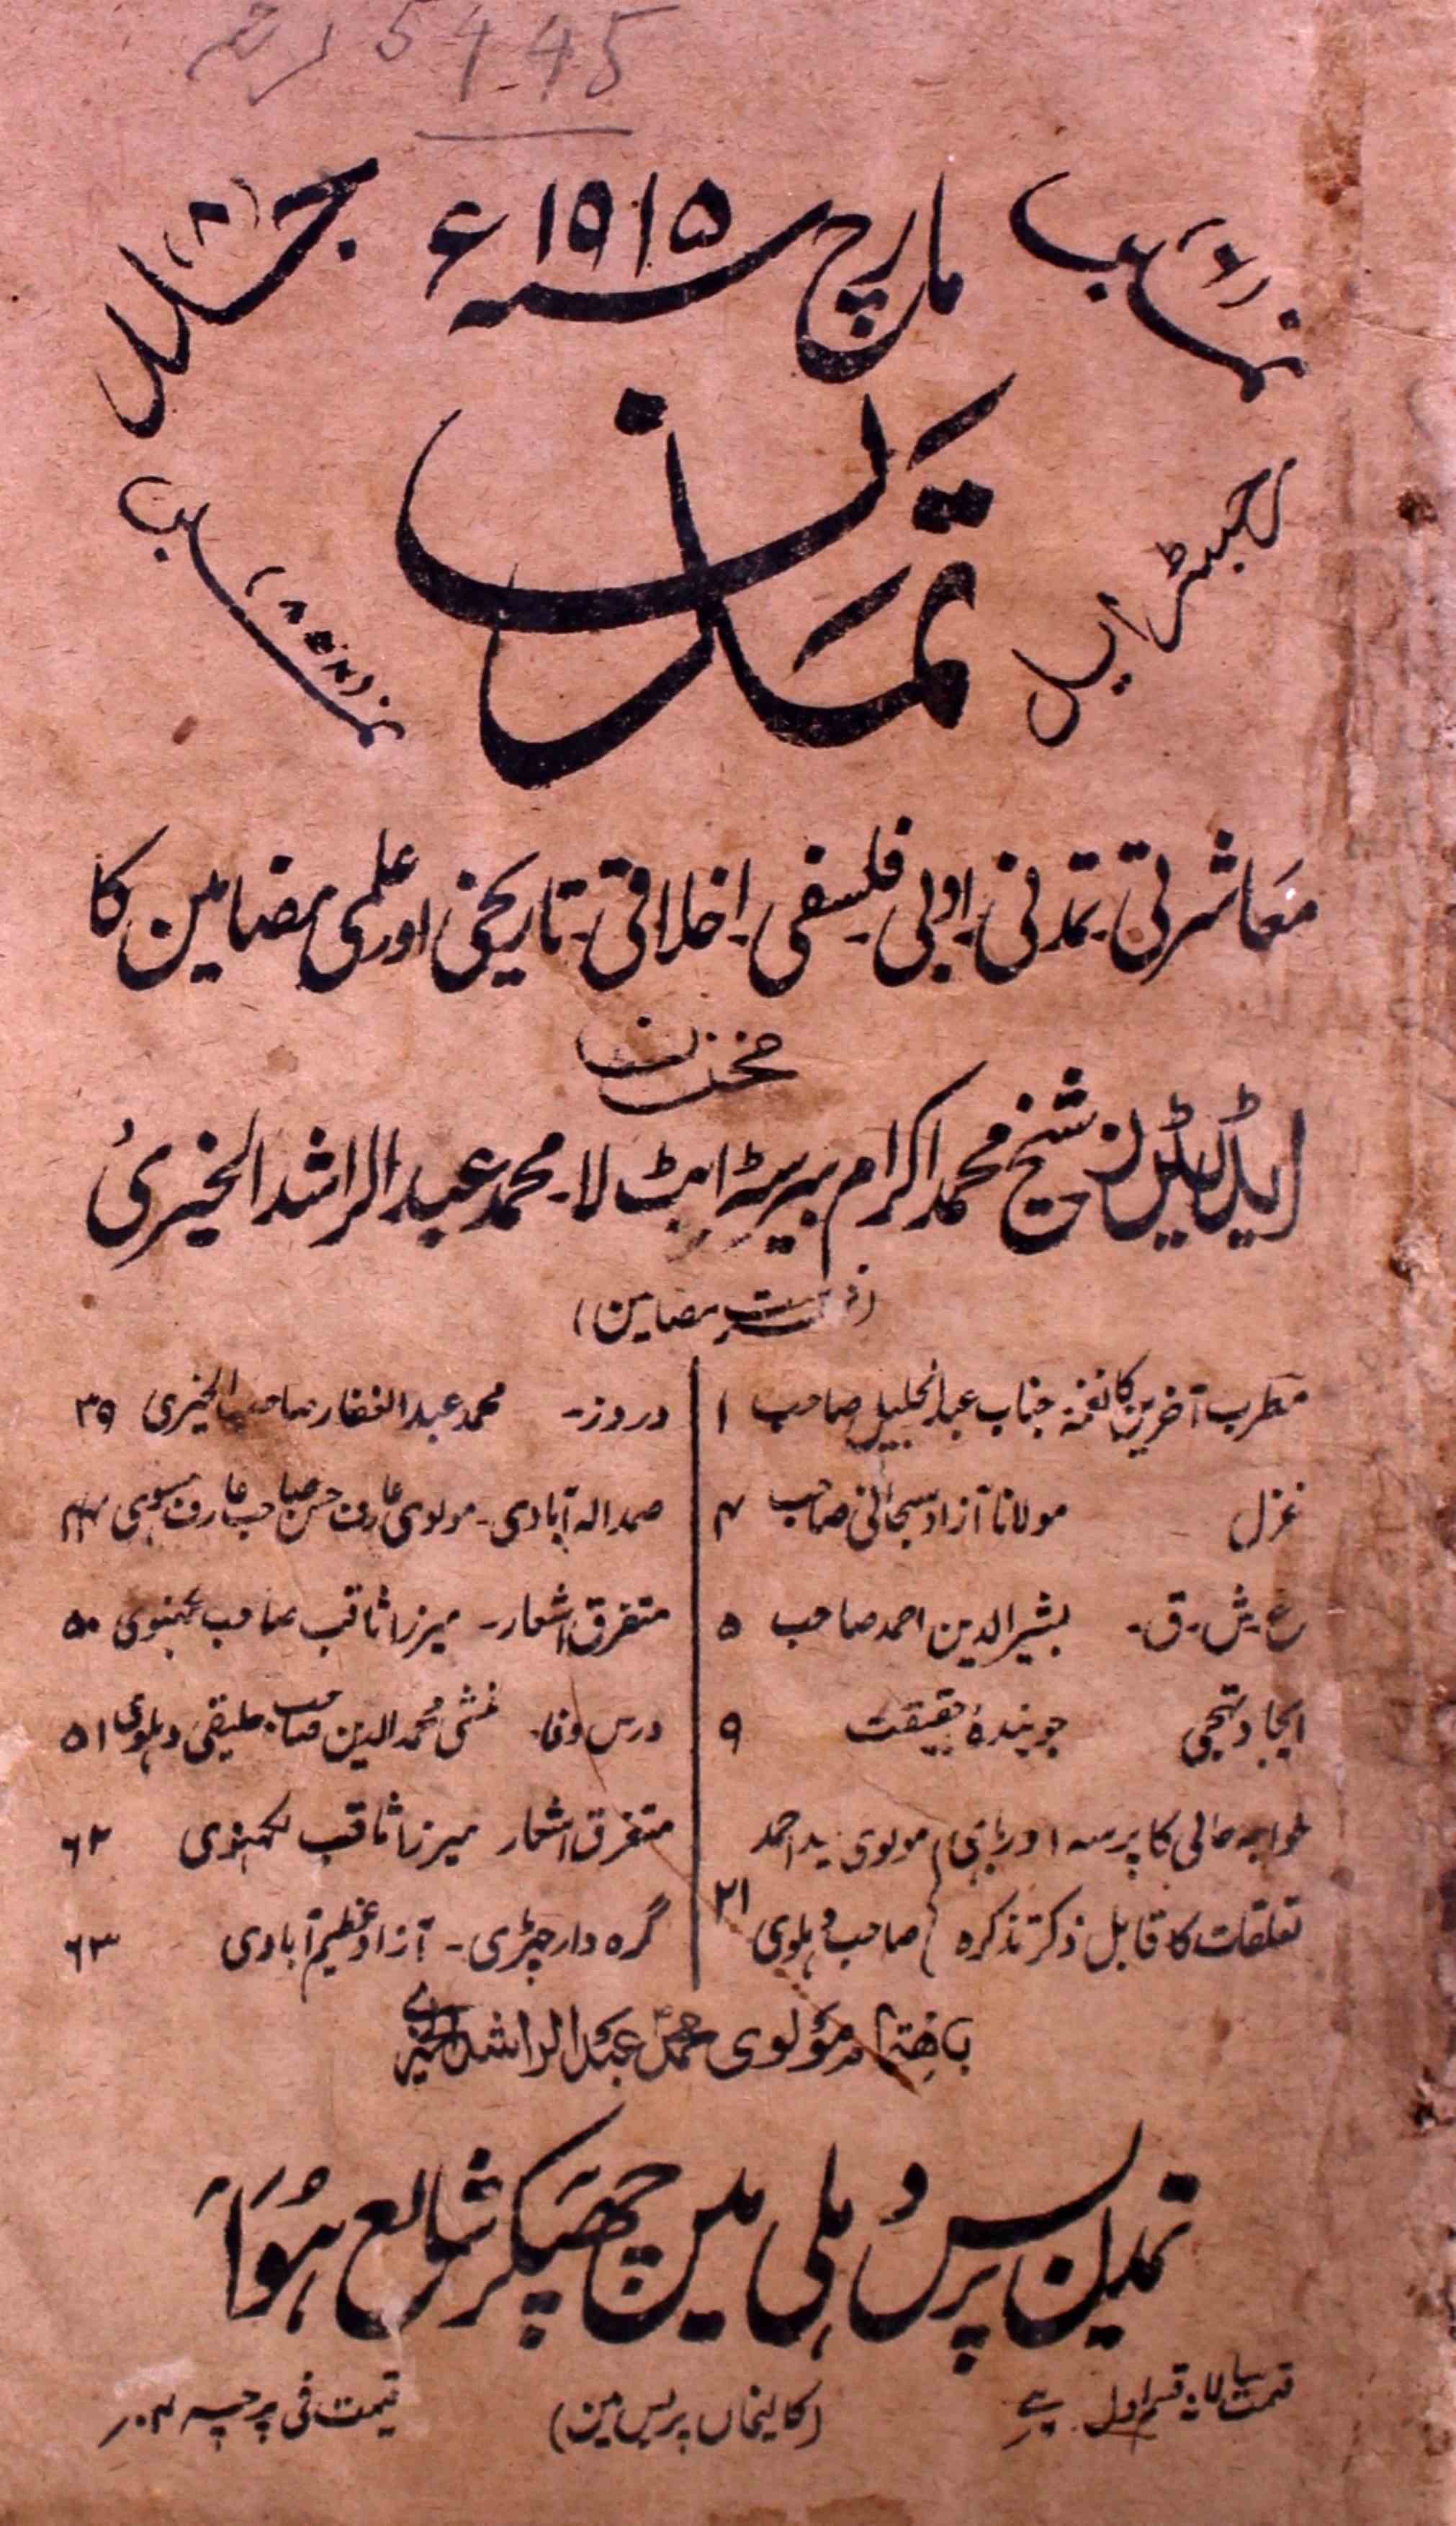 5445
نمبر (۶) مارچ سنہ ۱۹۱۵ء جلد (۸)
تمدن
رجسٹرڈ ایل
نمبر
معاشرتی۔ تمدنی۔ ادبی۔ فلسفی۔ اخلاقی۔ تاریخی اور علمی مضامین کا
مخزن
ایڈیٹرز شیخ محمد اکرام بیرسٹر ایٹ لا۔ محمد عبد الراشد الخیری
(فہرست مضامین)
مطرب آخرین کا نغمہ جناب عبد الجلیل صاحب ۱
غزل مولانا آزاد سبحانی صاحب ۴
ع۔ ش۔ ق۔ بشیر الدین احمد صاحب ۵
ایجاد تہجی جویندۂ حقیقت ۹
خواجہ حالی کا پرسہ اور باہمی مولوی سید احمد
تعلقات کا قابل ذکر تذکرہ صاحب دہلوی ۲۱
در روز۔ محمد عبد الغفار صاحب الخیری ۳۹
صمد الہ آبادی۔ مولوی عارف حسن صاحب عارف ہسوی ۴۴
متفرق اشعار۔ میرزا ثاقب صاحب لکہنوی ۵۰
درس وفا۔ منشی محمد الدین صاحب خلیقی دہلوی ۵۱
متفرق اشعار میرزا ثاقب لکہنوی ۶۲
گرہ دار چھڑی۔ آزاد عظیم آبادی ۶۳
باہتمام مولوی محمد عبد الراشد الخیری
تمدن پریس دہلی میں چھپکر شائع ہوا
قیمت سالانہ قسم اول
(کالیخاں پریس مین)
قیمت فی پرچہ ۴؍